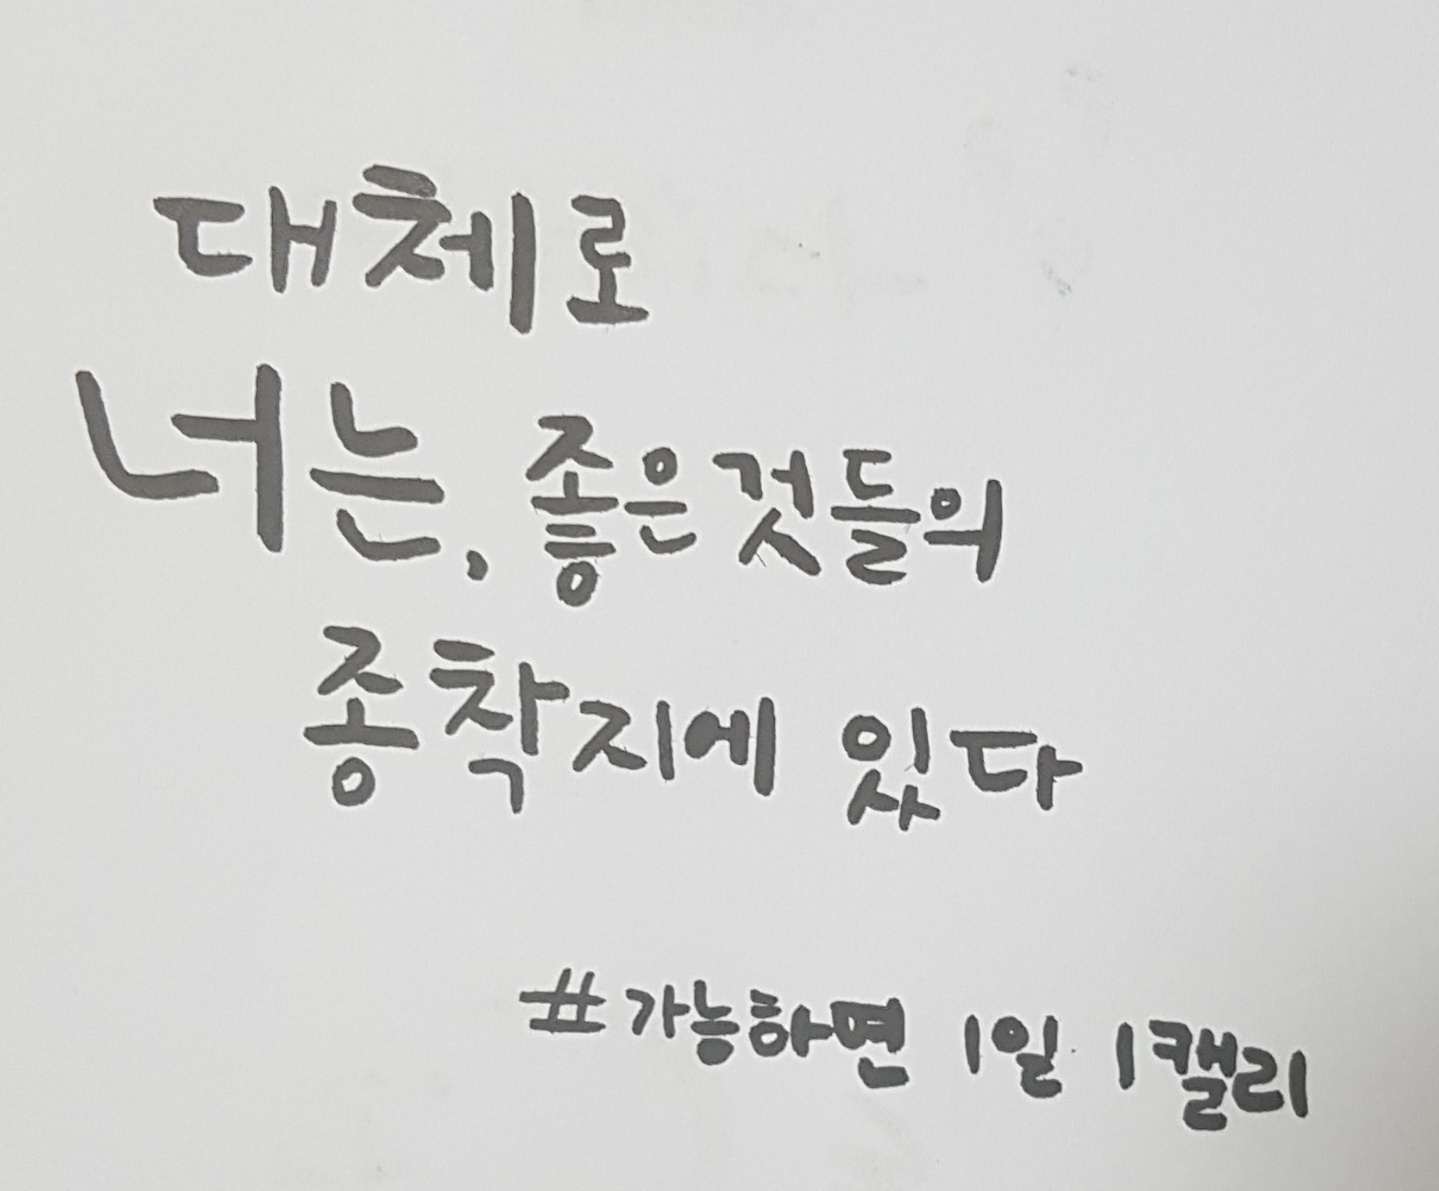 대체로
너는, 좋은것들의
종착지에 있다
#가능하면 1일 1캘리